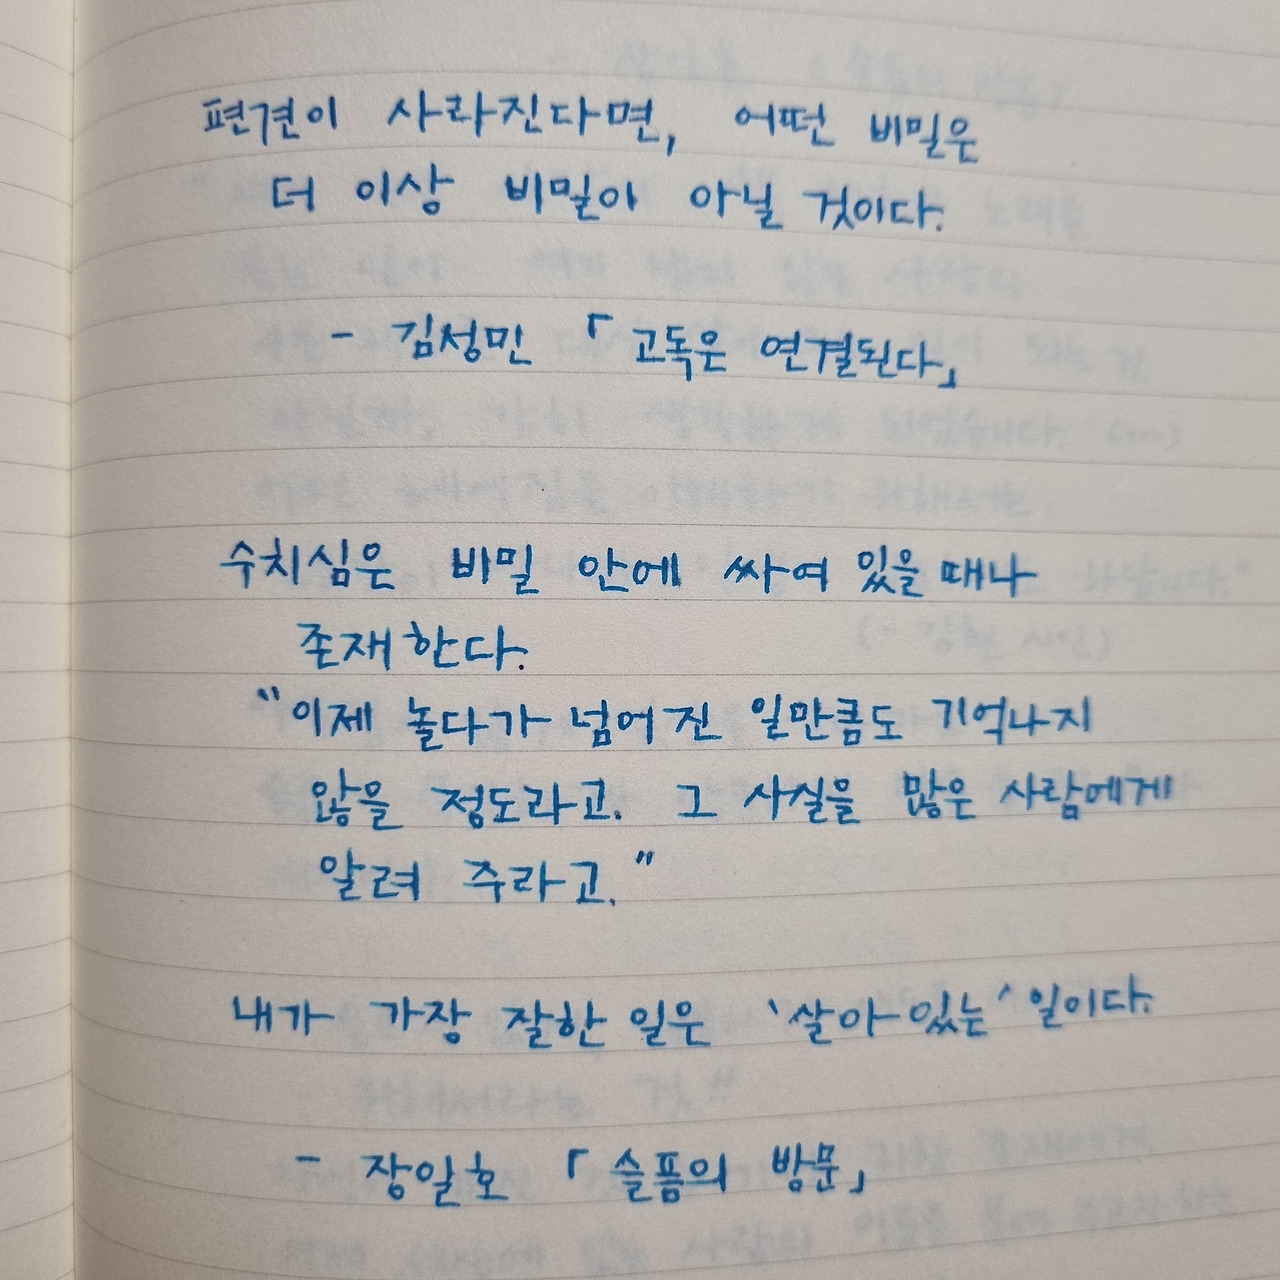 편견이 사라진다면, 어떤 비밀은
더 이상 비밀이 아닐 것이다.
- 김성민 「고독은 연결된다」
수치심은 비밀 안에 싸여 있을 때나
존재한다.
"이제 놀다가 넘어진 일만큼도 기억나지
않을 정도라고. 그 사실을 많은 사람에게
알려 주라고."
내가 가장 잘한 일은 '살아 있는' 일이다.
- 장일호 「슬픔의 방문」